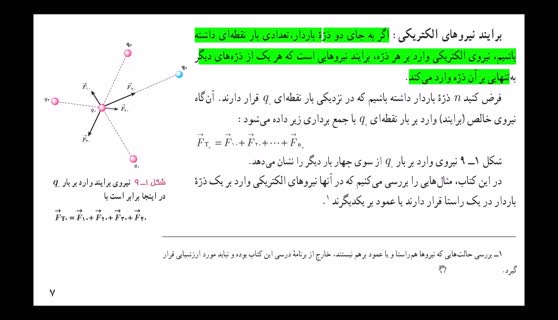 برایند نیروهای الکتریکی: اگر به جای دو ذرّهٔ باردار، تعدادی بار نقطه‌ای داشته
باشیم، نیروی الکتریکی وارد بر هر ذرّه، برایند نیروهایی است که هر یک از ذره‌های دیگر
به تنهایی بر آن ذرّه وارد می‌کند.
فرض کنید n ذرّهٔ باردار داشته باشیم که در نزدیکی بار نقطه‌ای q. قرار دارند. آن‌گاه
نیروی خالص (برایند) وارد بر بار نقطه‌ای q. با جمع برداری زیر داده می‌شود:
F⃗T. = F⃗۱۰ + F⃗۲۰ + ··· + F⃗n.
شکل ۱ــ۹ نیروی وارد بر بار q. از سوی چهار بار دیگر را نشان می‌دهد.
در این کتاب، مثال‌هایی را بررسی می‌کنیم که در آنها نیروهای الکتریکی وارد بر یک ذرّهٔ
باردار در یک راستا قرار دارند یا عمود بر یکدیگرند ۱.
شکل ۱ــ۹ نیروی برایند وارد بر بار q.
در اینجا برابر است با
F⃗T. = F⃗۱۰ + F⃗۲۰ + F⃗۳۰ + F⃗۴۰
۱ــ بررسی حالت‌هایی که نیروها هم‌راستا و یا عمود بر هم نیستند، خارج از برنامهٔ درسی این کتاب بوده و نباید مورد ارزشیابی قرار
گیرد.
۷